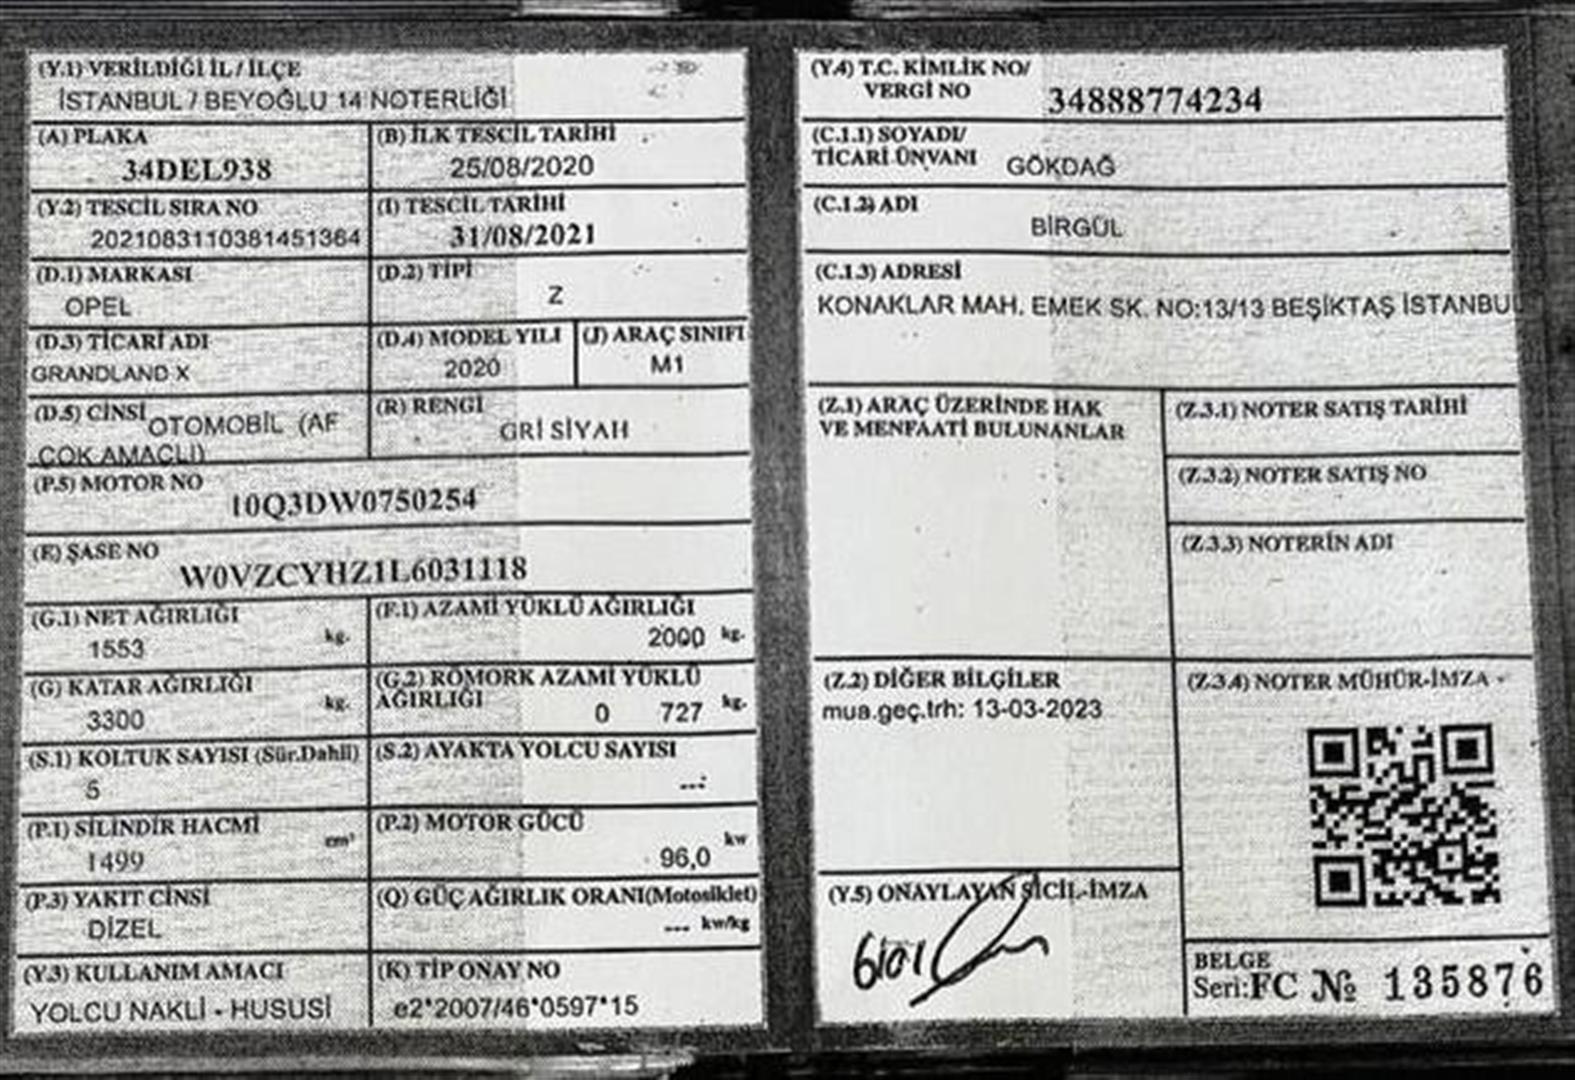 (Y.1) VERİLDİĞİ İL / İLÇE
İSTANBUL / BEYOĞLU 14 NOTERLİĞİ
(A) PLAKA
34DEL938
(B) İLK TESCİL TARİHİ
25/08/2020
(Y.2) TESCİL SIRA NO
2021083110381451364
(I) TESCİL TARİHİ
31/08/2021
(D.1) MARKASI
OPEL
(D.2) TİPİ
Z
(D.3) TİCARİ ADI
GRANDLAND X
(D.4) MODEL YILI
2020
(J) ARAÇ SINIFI
M1
(D.5) CİNSİ OTOMOBİL (AF
ÇOK AMAÇLI)
(R) RENGİ
GRİ SİYAH
(P.5) MOTOR NO
10Q3DW0750254
(E) ŞASE NO
W0VZCYHZ1L6031118
(G.1) NET AĞIRLIĞI
1553 kg.
(F.1) AZAMİ YÜKLÜ AĞIRLIĞI
2000 kg.
(G) KATAR AĞIRLIĞI
3300 kg.
(G.2) RÖMORK AZAMİ YÜKLÜ
AĞIRLIĞI
0 727 kg.
(S.1) KOLTUK SAYISI (Sür.Dahil)
5
(S.2) AYAKTA YOLCU SAYISI
---
(P.1) SİLİNDİR HACMİ
1499 cm³
(P.2) MOTOR GÜCÜ
96,0 kw
(P.3) YAKIT CİNSİ
DİZEL
(Q) GÜÇ AĞIRLIK ORANI(Motosiklet)
--- kw/kg
(Y.3) KULLANIM AMACI
YOLCU NAKLİ - HUSUSİ
(K) TİP ONAY NO
e2*2007/46*0597*15
(Y.4) T.C. KİMLİK NO/
VERGİ NO
34888774234
(C.1.1) SOYADI/
TİCARİ ÜNVANI
GÖKDAĞ
(C.1.2) ADI
BİRGÜL
(C.1.3) ADRESİ
KONAKLAR MAH. EMEK SK. NO:13/13 BEŞİKTAŞ İSTANBUL
(Z.1) ARAÇ ÜZERİNDE HAK
VE MENFAATİ BULUNANLAR
(Z.3.1) NOTER SATIŞ TARİHİ
(Z.3.2) NOTER SATIŞ NO
(Z.3.3) NOTERİN ADI
(Z.2) DİĞER BİLGİLER
mua.geç.trh: 13-03-2023
(Z.3.4) NOTER MÜHÜR-İMZA
(Y.5) ONAYLAYAN SİCİL-İMZA
BELGE
Seri:FC № 135876